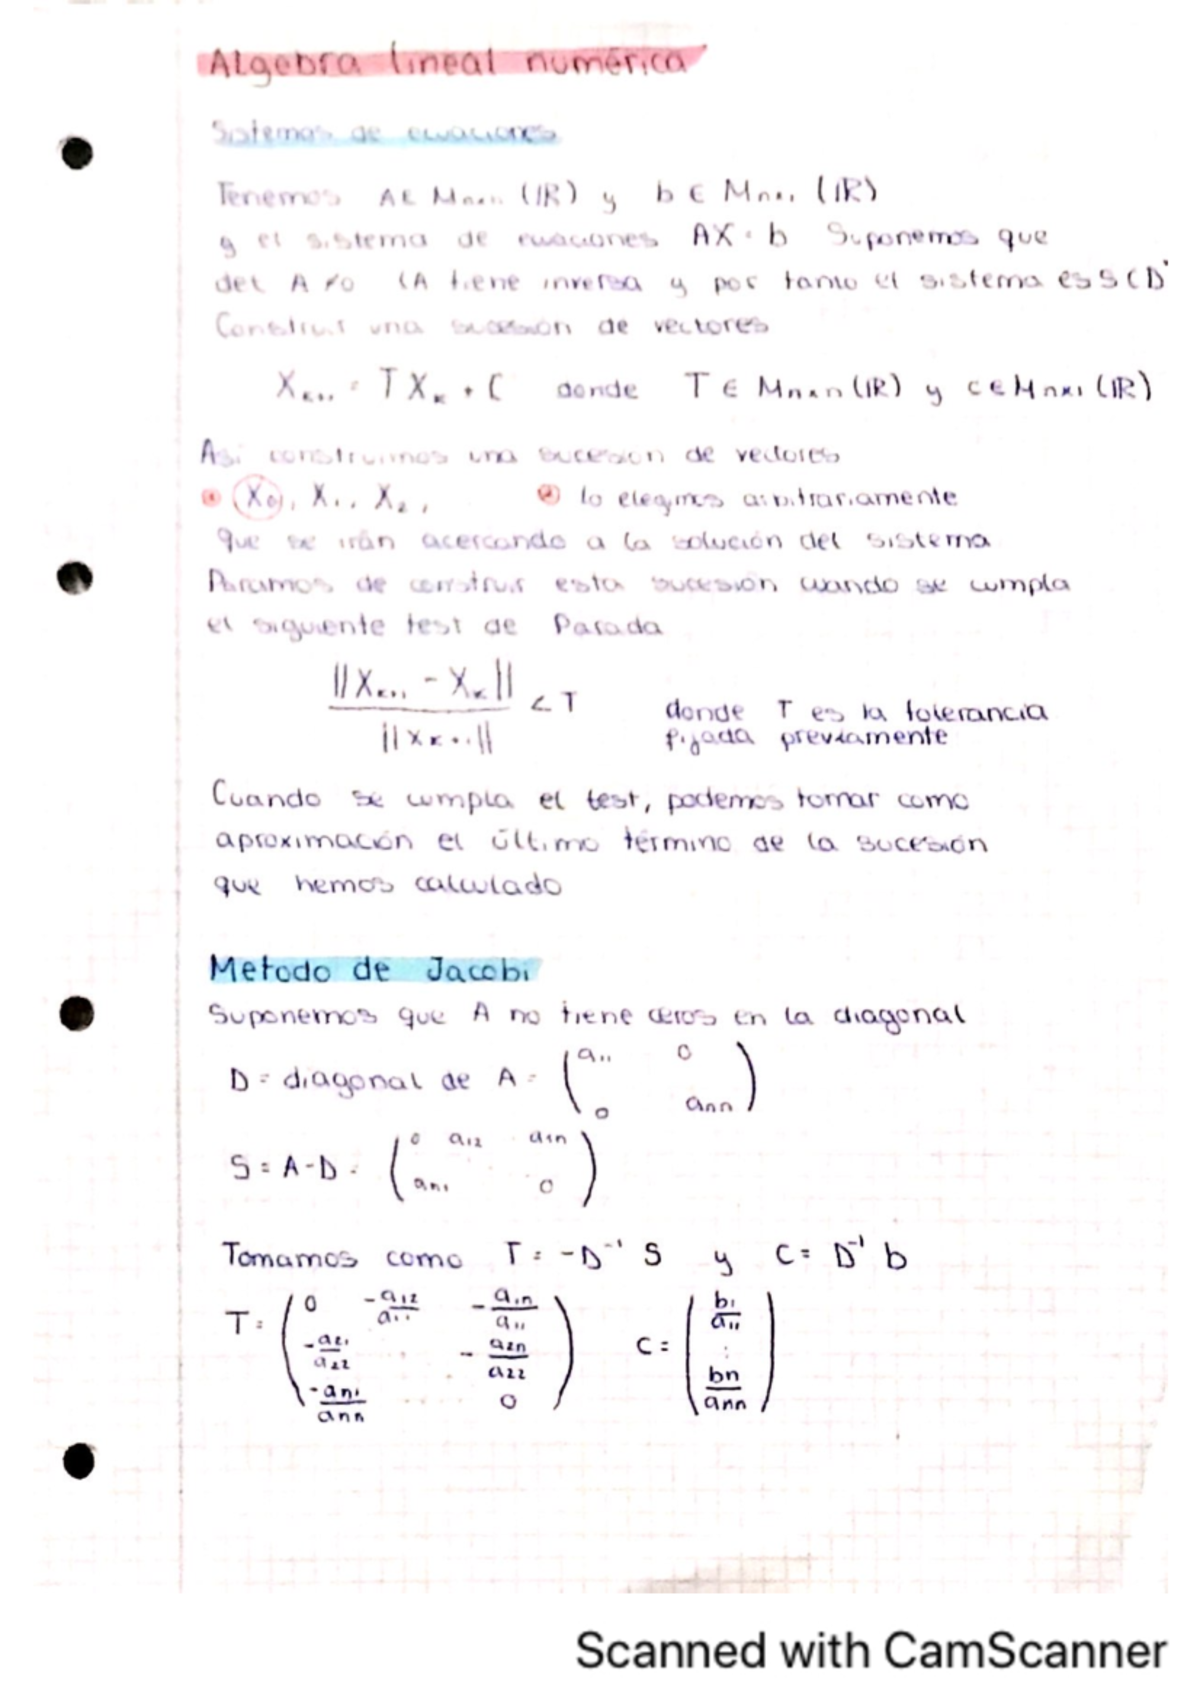 Algebra lineal numérica
Sistemas de ecuaciones
Tenemos A ∈ Mnxn (IR) y b ∈ Mnx1 (IR)
y el sistema de ecuaciones AX = b Suponemos que
det A ≠ 0 (A tiene inversa y por tanto el sistema es SCD
Construir una sucesión de vectores
Xk+1 = T Xk + C donde T ∈ Mnxn (IR) y c ∈ Mnx1 (IR)
Asi construimos una sucesion de vectores
* X0, X1, X2, * lo elegimos arbitrariamente
que se irán acercando a la solución del sistema
Paramos de construir esta sucesión cuando se cumpla
el siguiente test de Parada
||Xk+1 - Xk|| / ||Xk+1|| < T donde T es la tolerancia
fijada previamente
Cuando se cumpla el test, podemos tomar como
aproximación el último término de la sucesión
que hemos calculado
Metodo de Jacobi
Suponemos que A no tiene ceros en la diagonal
D = diagonal de A = ( a11 0 0 ann )
S = A - D = ( 0 a12 a1n an1 0 )
Tomamos como T = -D⁻¹ S y C = D⁻¹ b
T = ( 0 -a12/a11 -a1n/a11 -a21/a22 -a2n/a22 -an1/ann 0 ) C = ( b1/a11 : bn/ann )
Scanned with CamScanner